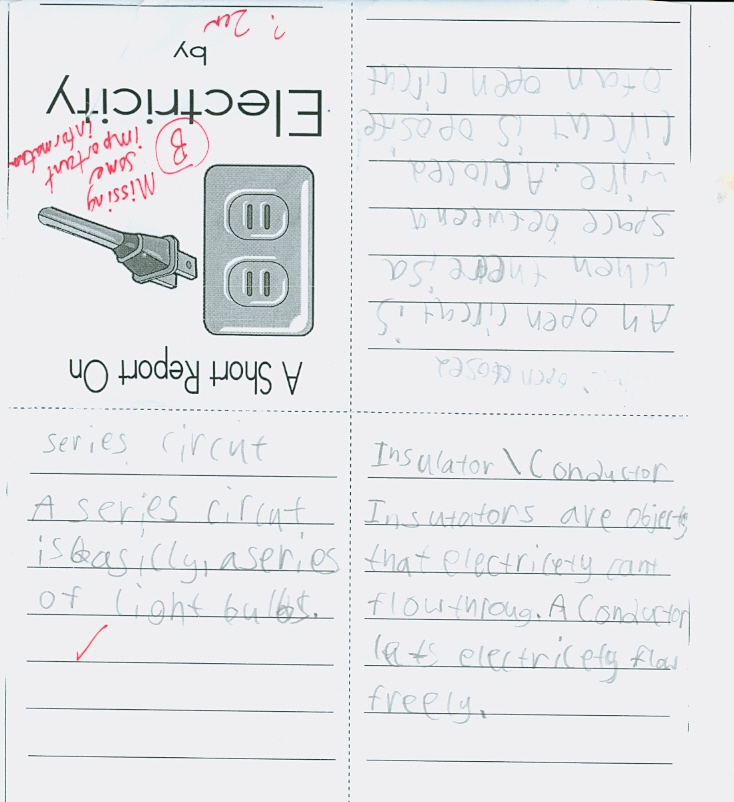 A Short Report On
Electricity
by
B
Missing
some
important
information
open closed
An open circut is
when there is a
space between a
wire. A closed
circut is oposite
of an open circut
series circut
A series circut
is basiclly, a series
of light bulbs.
Insulator \ Conductor
Insulators are objects
that electricety cant
flow throug. A Conductor
lets electricety flow
freely.